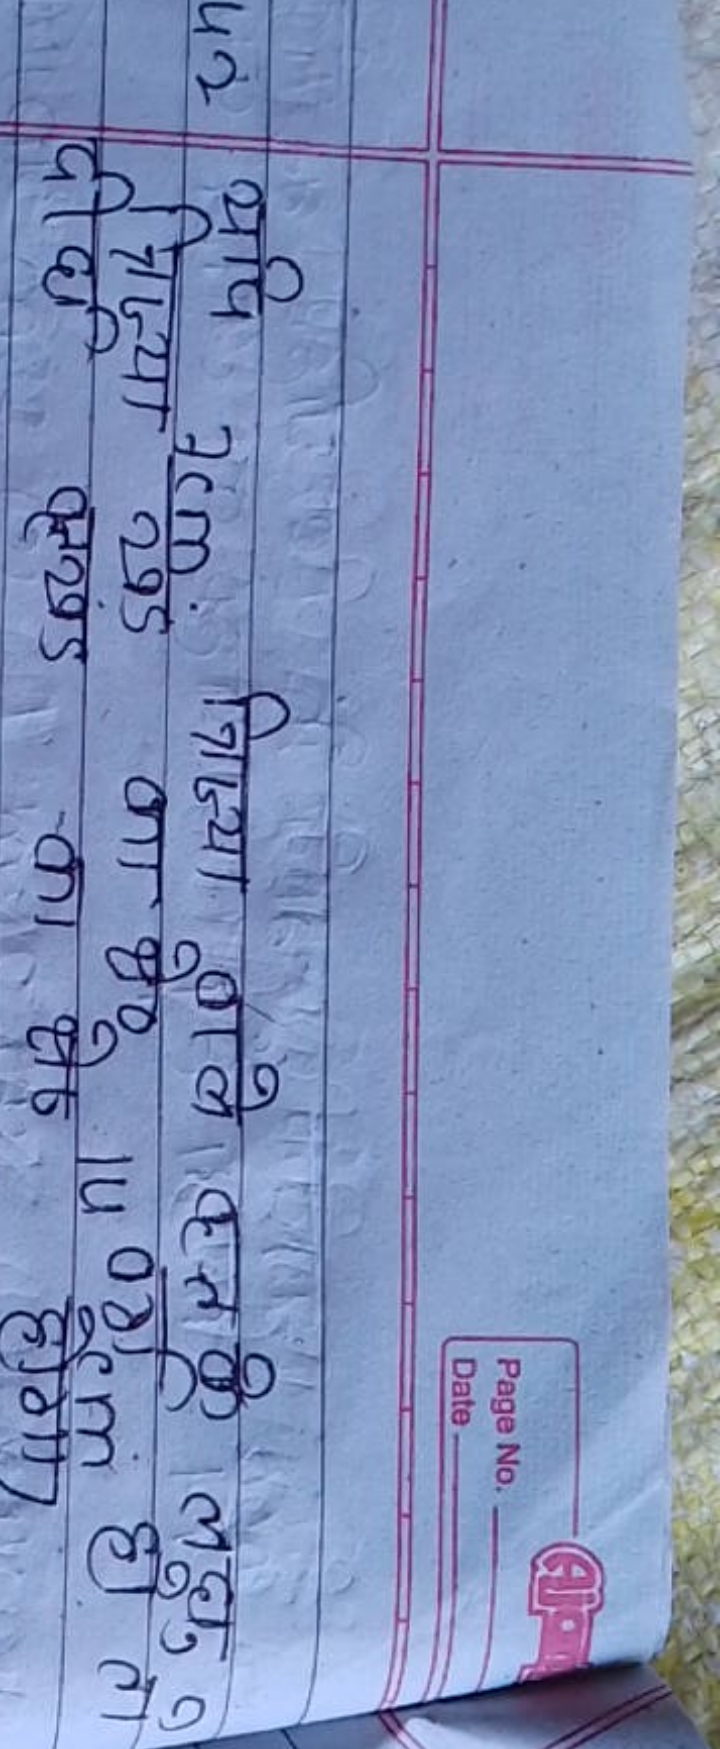 Page No.
Date
42 यदि 7cm. त्रिज्या वाले वृत्त के लघु
त्रिज्या खंड का क्षे० 110 वर्ग cm हो तो
दीर्घ वृतखंड का क्षेत्र होगा